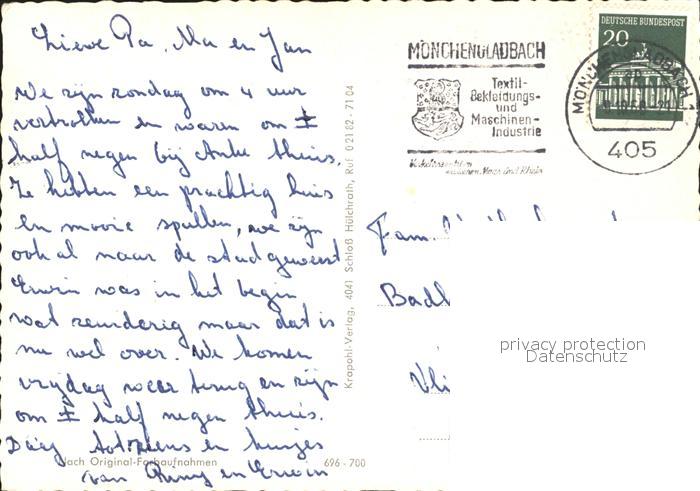 Lieve Pa, Ma en Jan
We zijn zondag om 4 uur
vertrokken en waren om ±
half negen bij Anke thuis.
Ze hebben een prachtig huis
en mooie spullen, we zijn
ook al naar de stad geweest
Erwin was in het begin
wat zeurderig maar dat is
nu wel over. We komen
vrijdag weer terug en zijn
om ± half negen thuis.
Daag tot ziens en kusjes
van Remy en Erwin
Nach Original-Farbaufnahmen
696 - 700
Krapohl-Verlag, 4041 Schloß Hülchrath, Ruf 0 21 82 - 71 04
MÖNCHENGLADBACH
Textil-
Bekleidungs-
und
Maschinen-
Industrie
zwischen Maas und Rhein
DEUTSCHE BUNDESPOST
20
MÖNCHENGLADBACH
405
Fam.
Badh
Vli
privacy protection
Datenschutz